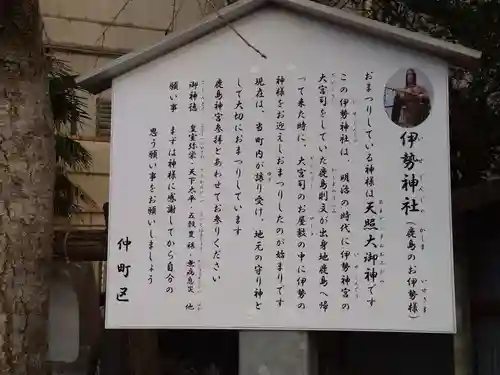 伊勢神社（鹿島のお伊勢様）
おまつりしている神様は天照大御神です
この伊勢神社は、明治の時代に伊勢神宮の
大宮司をしていた鹿島則文が出身地鹿島へ帰
って来た時に、大宮司のお屋敷の中に伊勢の
神様をお迎えしおまつりしたのが始まりです
現在は、当町内が譲り受け、地元の守り神と
して大切におまつりしています
鹿島神宮参拝とあわせてお参りください
御神徳 皇室弥栄・天下太平・五穀豊穣・無病息災 他
願い事 まずは神様に感謝してから自分の
思う願い事をお願いしましょう
仲町区